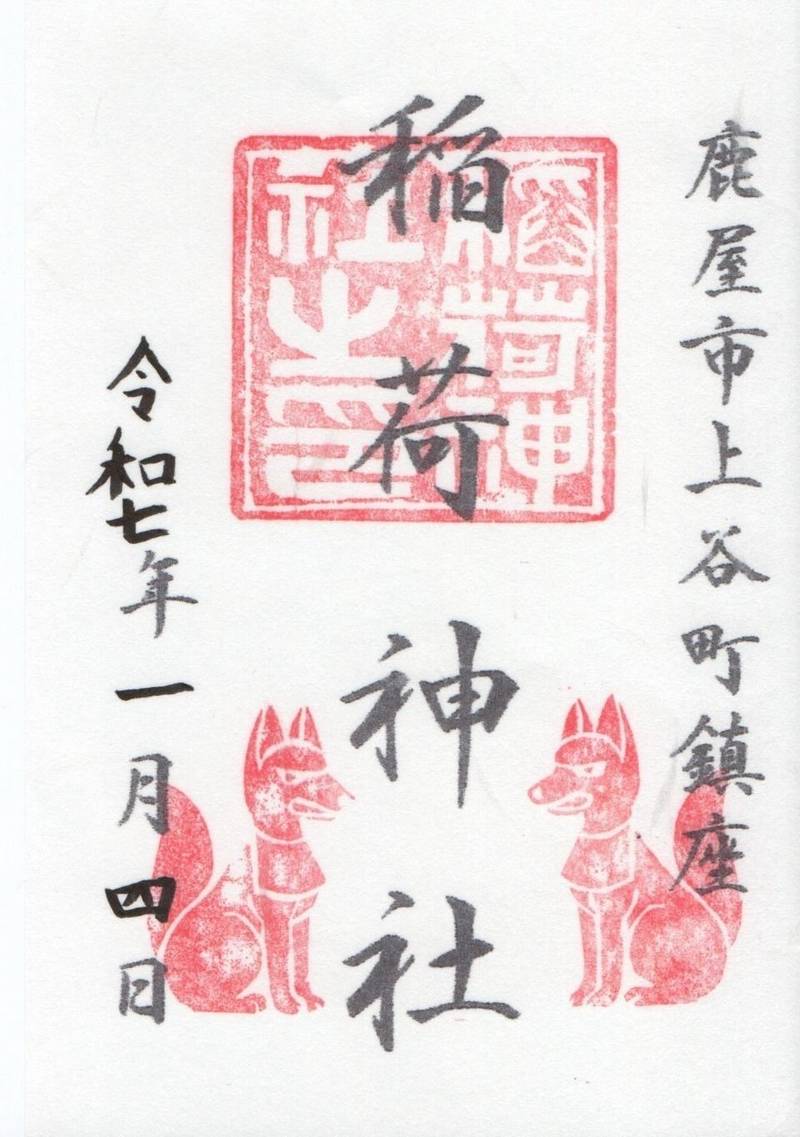 鹿屋市上谷町鎮座
稲荷神社
稲荷神
社之印
令和七年一月四日